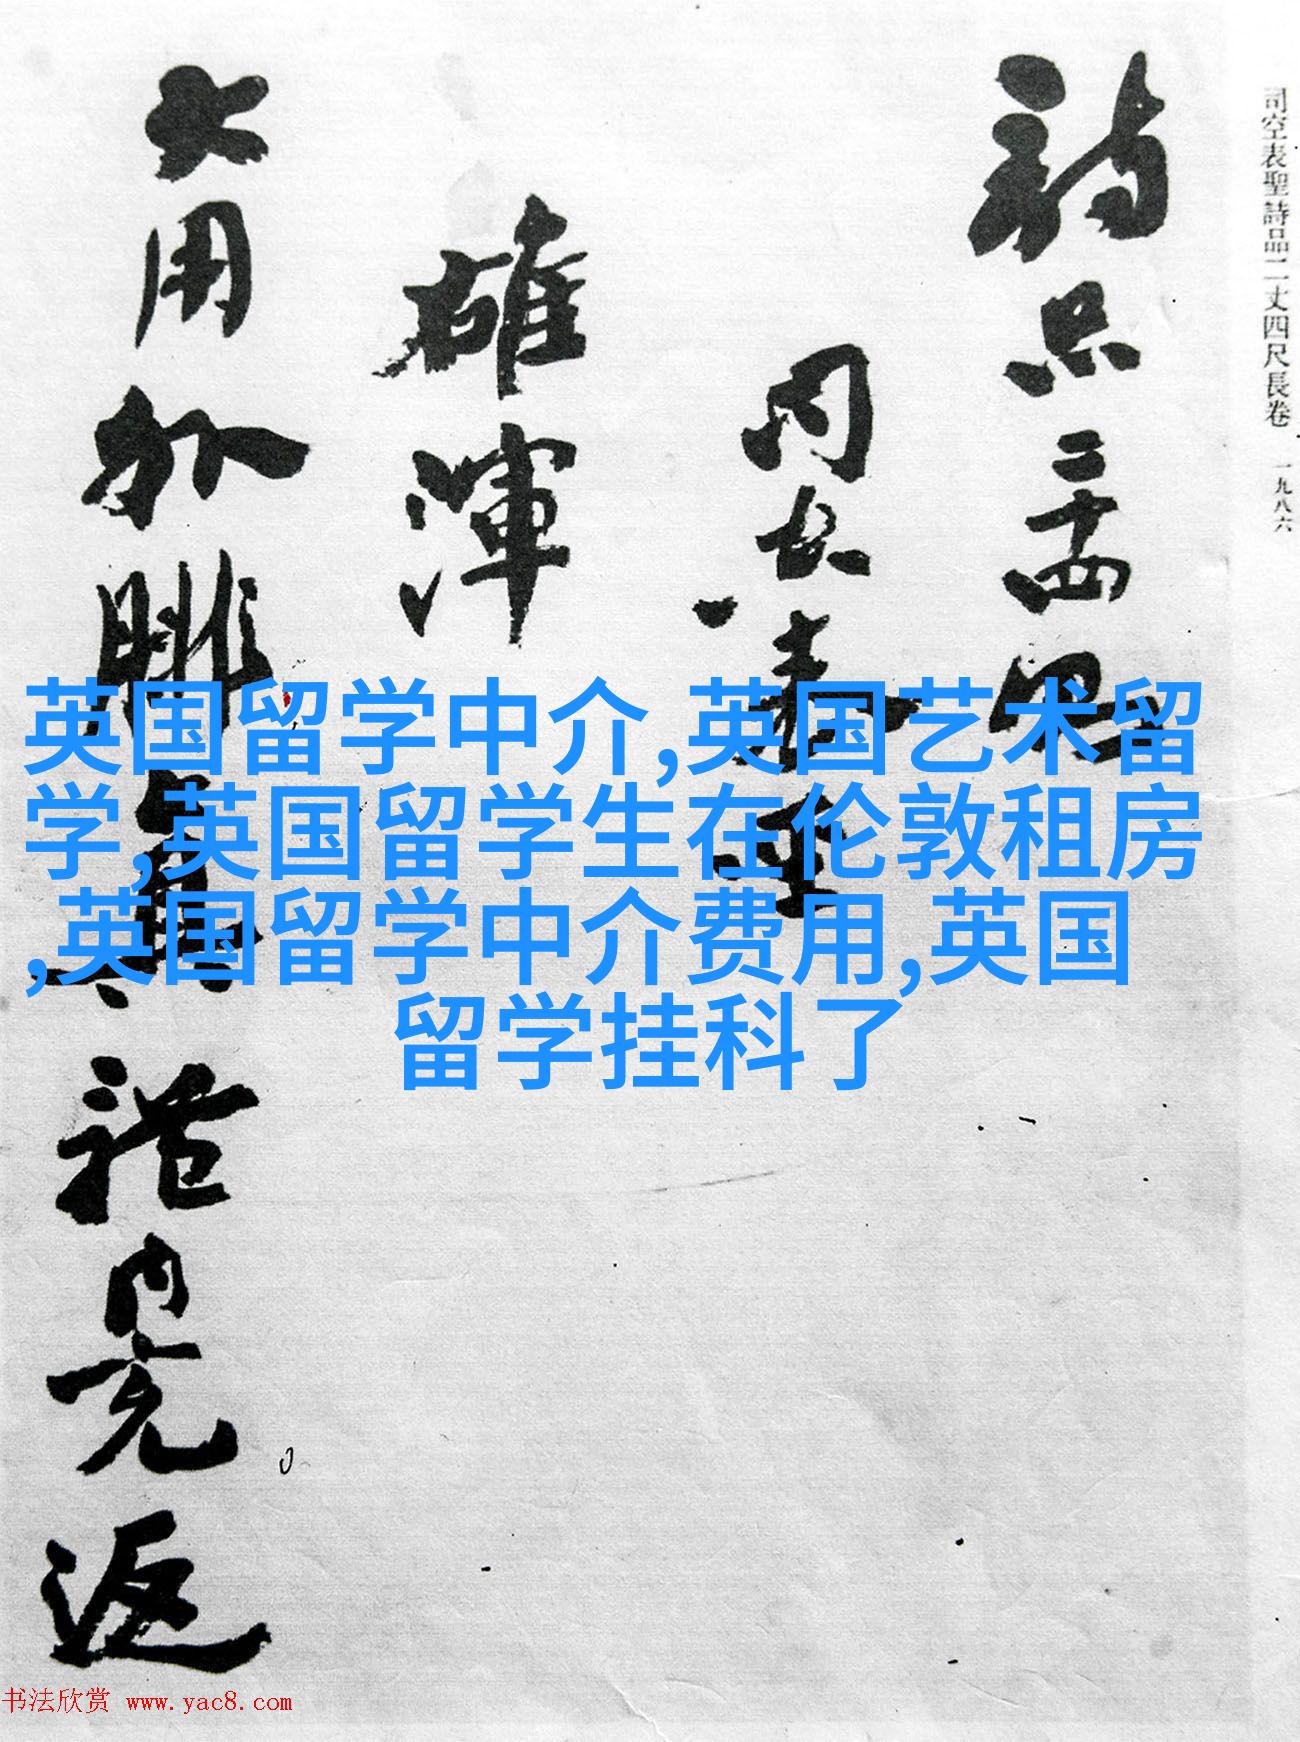 司空表聖詩品二丈四尺長卷 一九八六
詩品二十四則
司空表聖
雄渾
大用外腓真體內充返
英国留学中介,英国艺术留
学,英国留学生在伦敦租房
,英国留学中介费用,英国
留学挂科了
书法欣赏 www.yac8.com